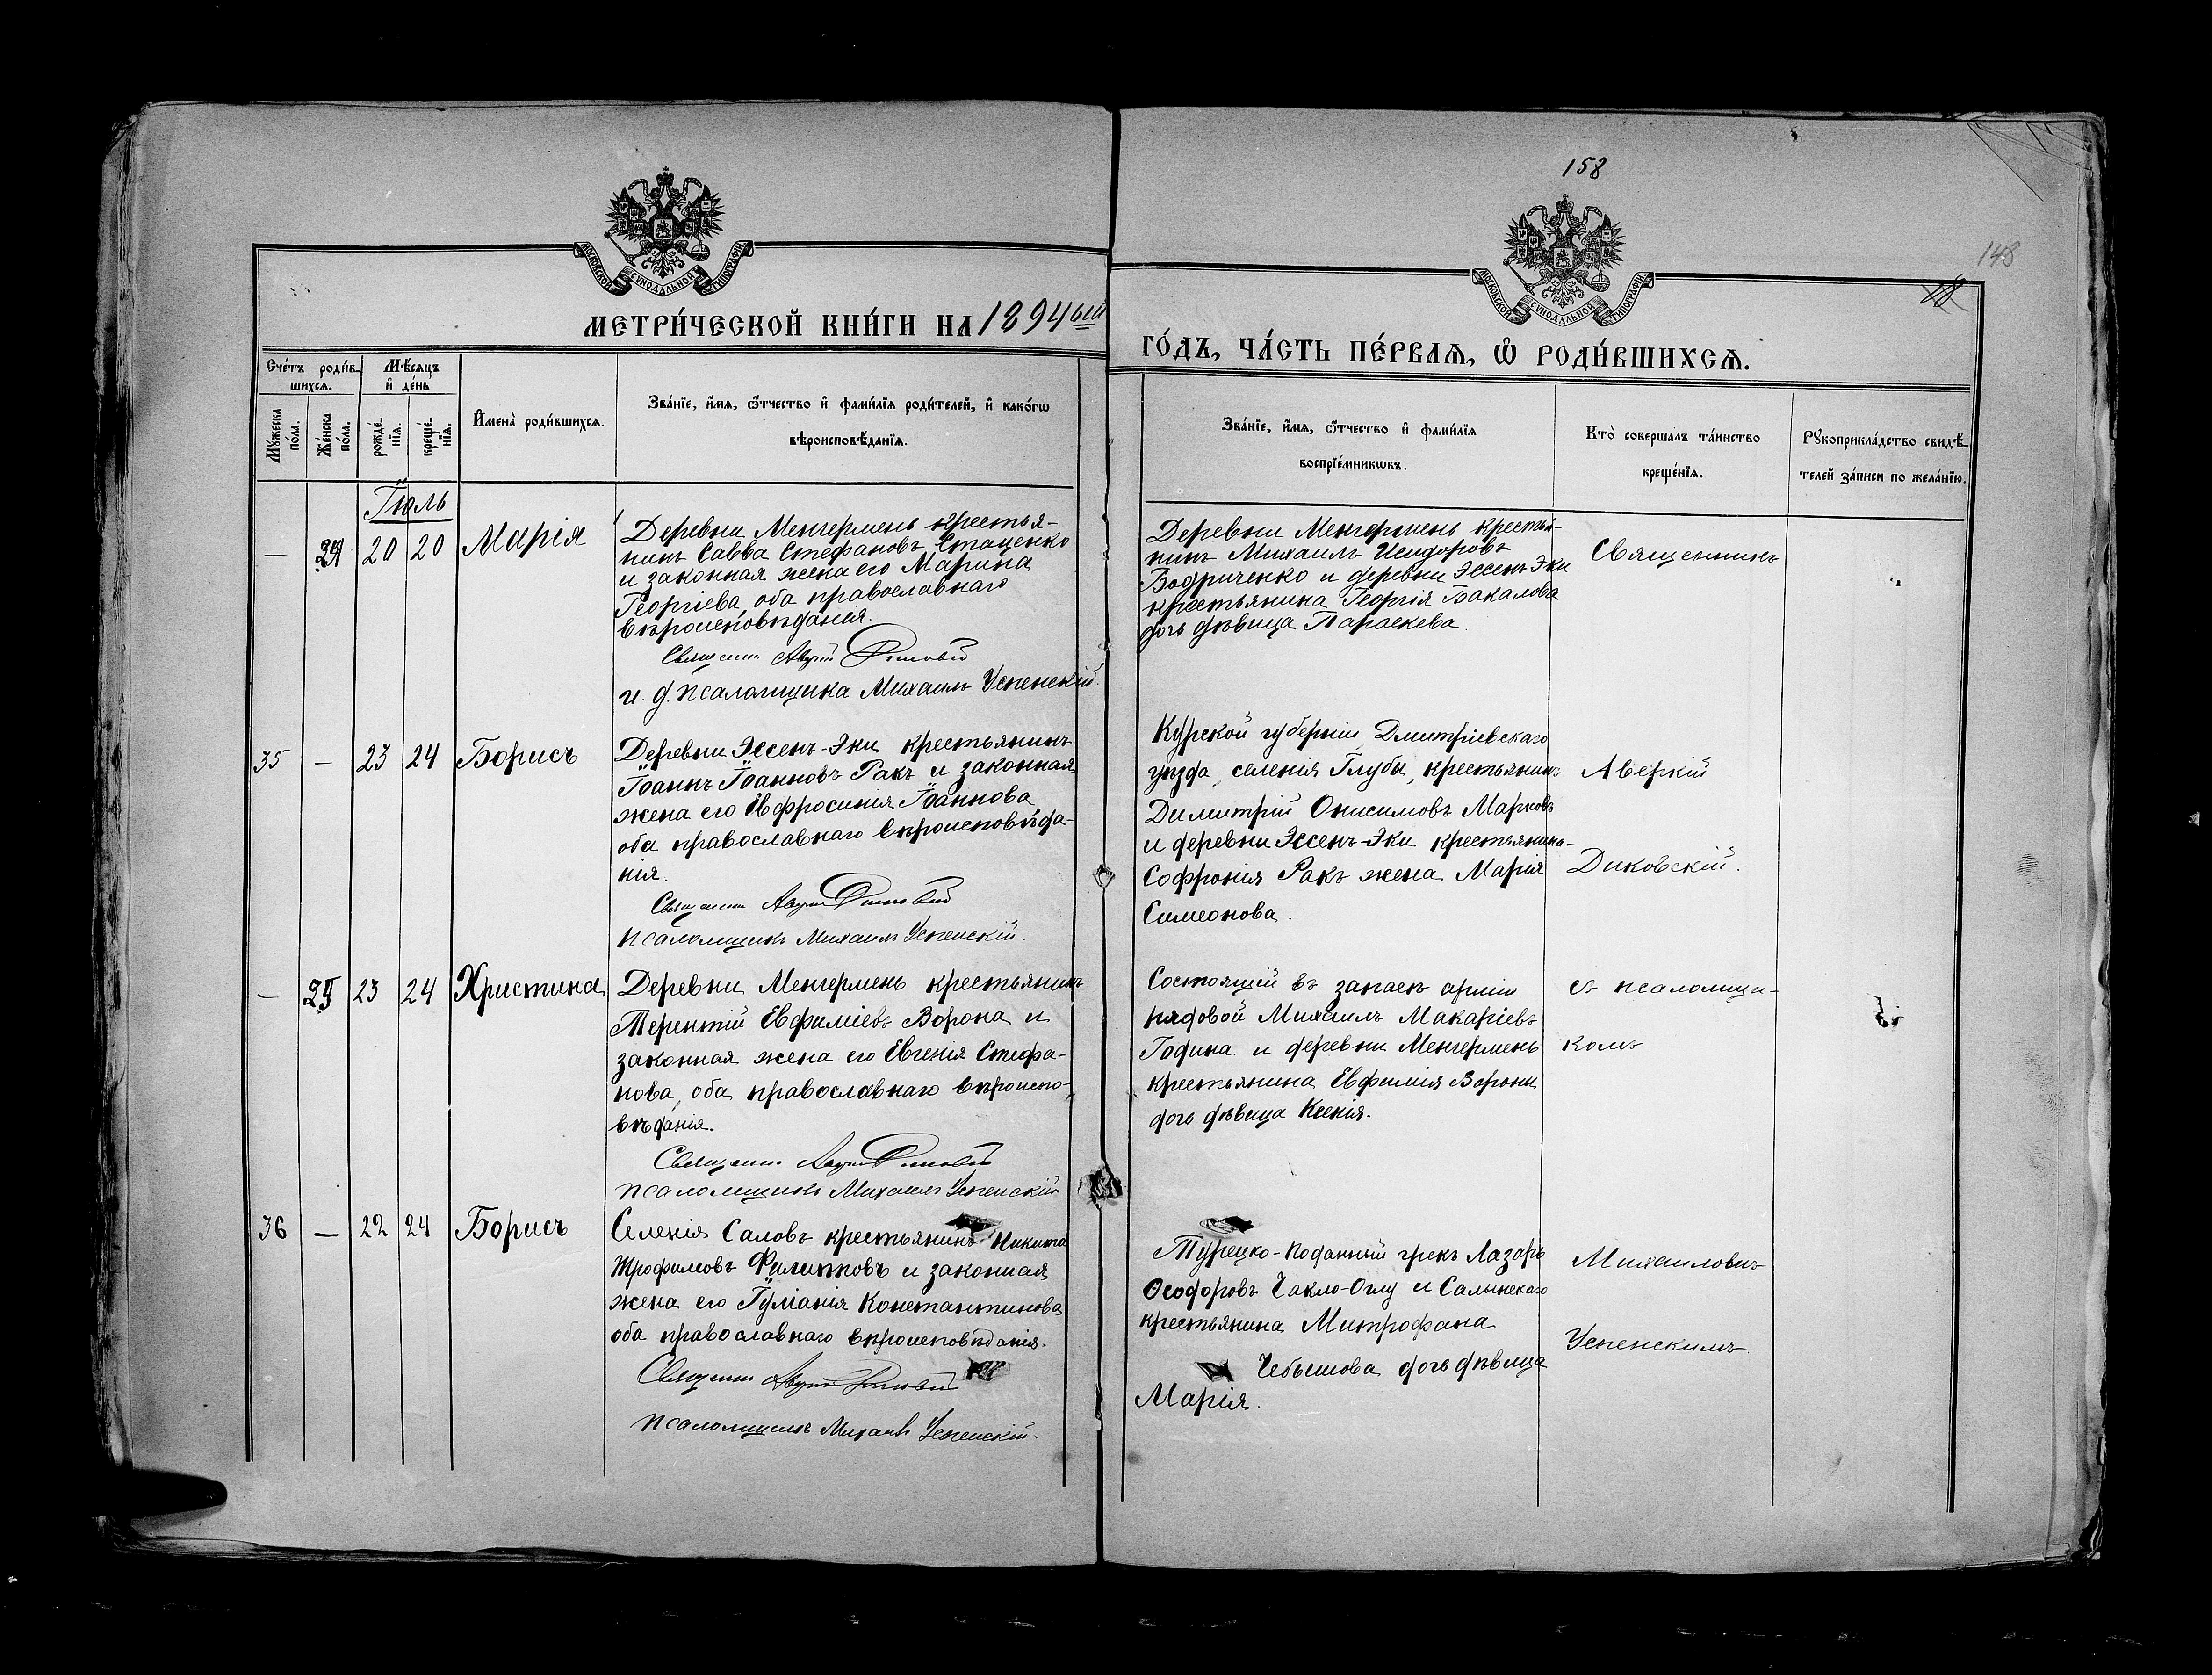 158
148
18
МОСКОВСКОЙ СУНОДАЛЬНОЙ ТИПОГРАФІИ
МОСКОВСКОЙ СУНОДАЛЬНОЙ ТИПОГРАФІИ
МЕТРИ́ЧЕСКОЙ КНИ́ГИ НА 1894ый
ГО́ДЪ, ЧА́СТЬ ПЕ́РВАѦ, Ѡ҆ РОДИ́ВШИХСѦ.
Сче́тъ роди́в-
шихсѧ.
Мѣ́сѧцъ
и҆ де́нь
Мꙋ́жеска
по́ла.
Же́нска
по́ла.
рожде́-
нїѧ.
креще́-
нїѧ.
И҆мена̀ роди́вшихсѧ.
Зва́нїе, и҆́мѧ, ѻ҆́тчество и҆ фами́лїѧ роди́телей, и҆ како́гѡ
вѣроисповѣ́данїѧ.
Зва́нїе, и҆́мѧ, ѻ҆́тчество и҆ фами́лїѧ
воспрїе́мникѡвъ.
Кто̀ соверша́лъ та́инство
креще́нїѧ.
Рꙋкоприкла́дство свидѣ́-
телей за́писи по жела́нїю.
Іюль
— 24 20 20 Марія
Деревни Менгермень крестья-
нинъ Савва Стефановъ Стаценко
и законная жена его Марина
Георгіева, оба православнаго
вѣроисповѣданія.
Священникъ Аверкій Диковскій
и. д. псаломщика Михаилъ Успенскій.
Деревни Менгермень крестья-
нинъ Михаилъ Исидоровъ
Бодриченко и деревни Эссенъ-Эки
крестьянина Георгія Бакалова
дочь дѣвица Параскева.
Священникъ
35 — 23 24 Борисъ
Деревни Эссенъ-Эки крестьянинъ
Іоаннъ Іоанновъ Ракъ и законная
жена его Евфросинія Іоаннова
оба православнаго вѣроисповѣда-
нія.
Священникъ Аверкій Диковскій
Псаломщикъ Михаилъ Успенскій.
Курской губерніи Дмитріевскаго
уѣзда, селенія Глубы, крестьянинъ
Димитрій Онисимовъ Марковъ
и деревни Эссенъ-Эки крестьянина
Софронія Ракъ жена Марія
Симеонова.
Аверкій
Диковскій.
— 25 23 24 Христина
Деревни Менгермень крестьянинъ
Терентій Евфиміевъ Ворона и
законная жена его Евгенія Стефа-
нова, оба православнаго вѣроиспо-
вѣданія.
Священникъ Аверкій Диковскій
Псаломщикъ Михаилъ Успенскій
Состоящій въ запасѣ арміи
рядовой Михаилъ Макаріевъ
Година и деревни Менгермень
крестьянина Евфимія Вороны
дочь дѣвица Ксенія.
съ псаломщи-
комъ
36 — 22 24 Борисъ
Селенія Саловъ крестьянинъ Никита
Трофимовъ Филипповъ и законная
жена его Іуліанія Константинова
оба православнаго вѣроисповѣданія.
Священникъ Аверкій Диковскій
Псаломщикъ Михаилъ Успенскій.
Турецко-поданный грекъ Лазарь
Ѳеодоровъ Чакло-Оглу и Салынскаго
крестьянина Митрофана
Чебышова дочь дѣвица
Марія.
Михаиловичъ
Успенскимъ.